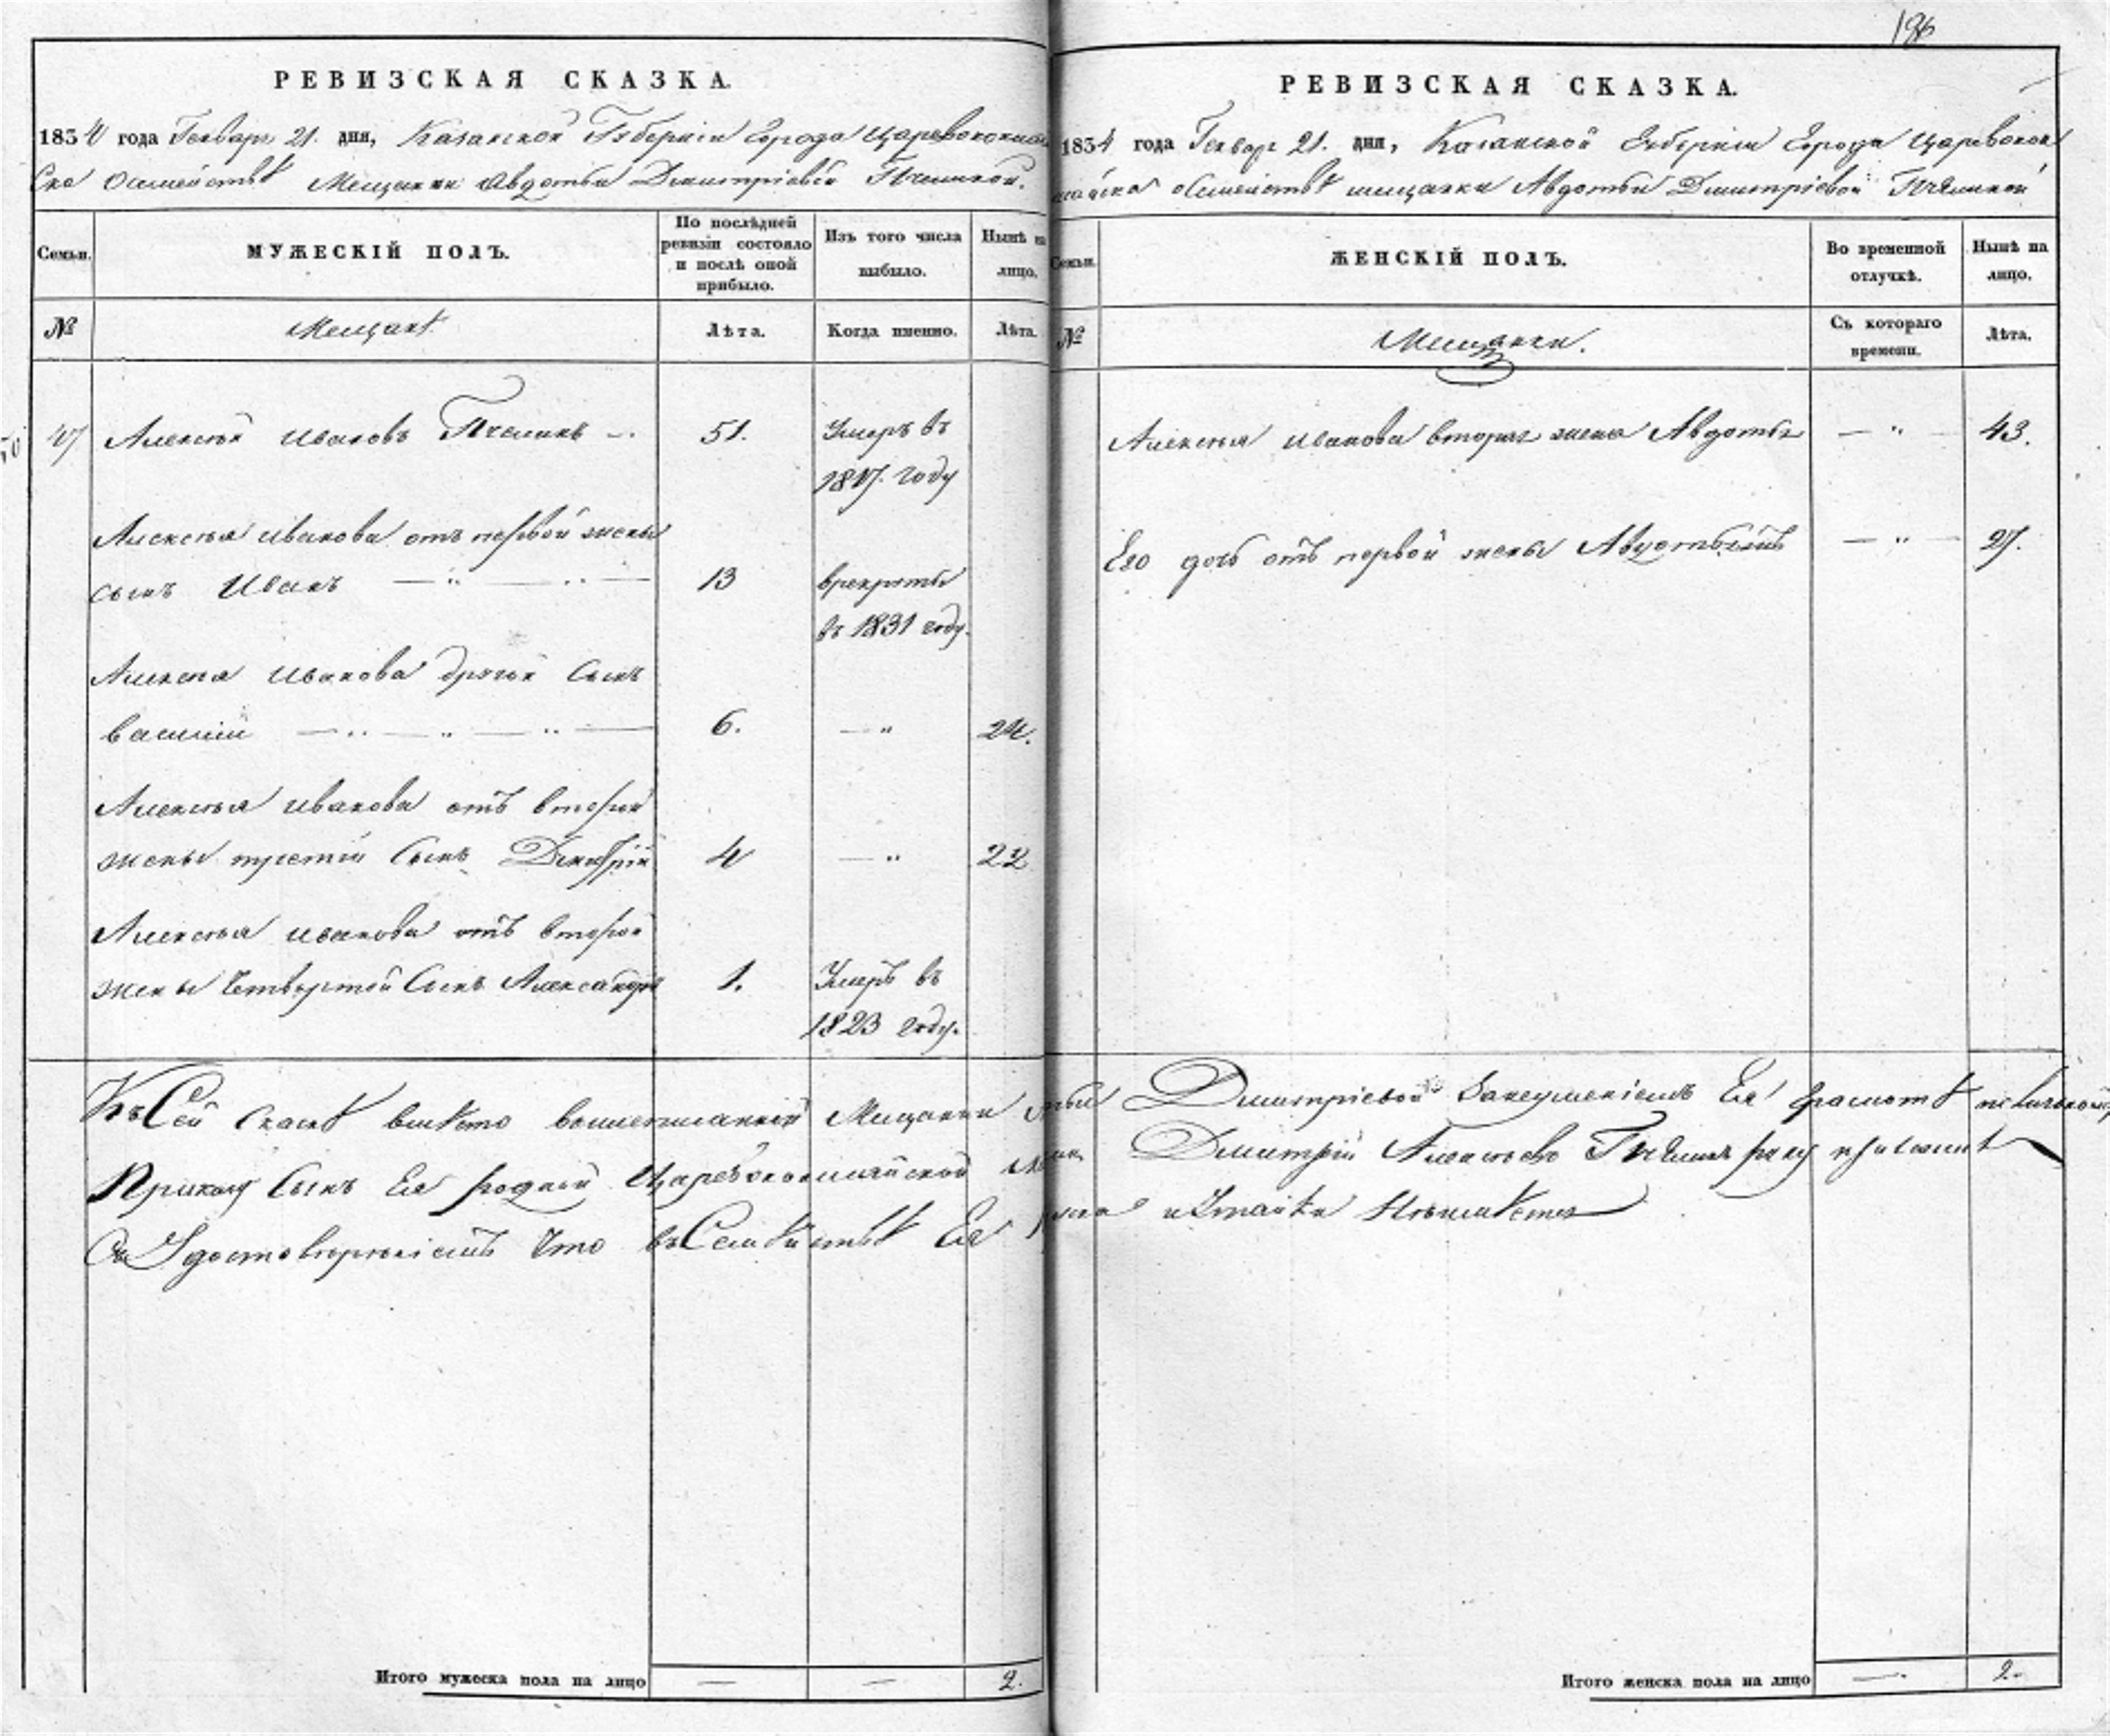 196
РЕВИЗСКАЯ СКАЗКА.
1834 года Генваря 21. дня, Казанской Губерніи Города Царевококшай
ска О семействѣ Мещанки Авдотьи Дмитріевой Пчелиной.
Семьи.
МУЖЕСКІЙ ПОЛЪ.
По послѣдней ревизіи состояло и послѣ оной прибыло.
Изъ того числа выбыло.
Нынѣ на лицо.
№
Мещанѣ
Лѣта.
Когда именно.
Лѣта.
50
47 Алексѣй Ивановъ Пчелинъ 51. Умеръ въ
1817. году
Алексѣя Иванова отъ первой жены
сынъ Иванъ 13 в рекруты
въ 1831 году.
Алексѣя Иванова другой Сынъ
Василій 6. — " 24.
Алексѣя Иванова отъ второй
жены третій Сынъ Димитрій 4 — " 22
Алексѣя Иванова отъ второй
жены Четвертой Сынъ Александръ 1. Умеръ въ
1823 году.
Къ Сей Скаскѣ вмѣсто вышеписанной Мещанки
Приказу Сынъ Ея родной Царевококшайской
Съ Удостовѣреніемъ Что въ Семѣйствѣ Ея
Итого мужеска пола на лицо — — 2.
РЕВИЗСКАЯ СКАЗКА.
1834 года Генваря 21. дня, Казанской Губерніи Города Царевокок
шайска о Семействѣ мещанки Авдотьи Дмитріевой Пчелиной
Семьи.
ЖЕНСКІЙ ПОЛЪ.
Во временной отлучкѣ.
Нынѣ на лицо.
№
Мещанки.
Съ котораго времени.
Лѣта.
Алексѣя Иванова вторая жена Авдотья — " — 43.
Его дочь отъ первой жены Авдотья — " — 27.
Дмитріевой За неумѣніемъ Ея грамотѣ
Дмитрій Алексѣевъ Пчелинъ руку приложилъ
и Утайки Нѣтъ
Итого женска пола на лицо — 2.